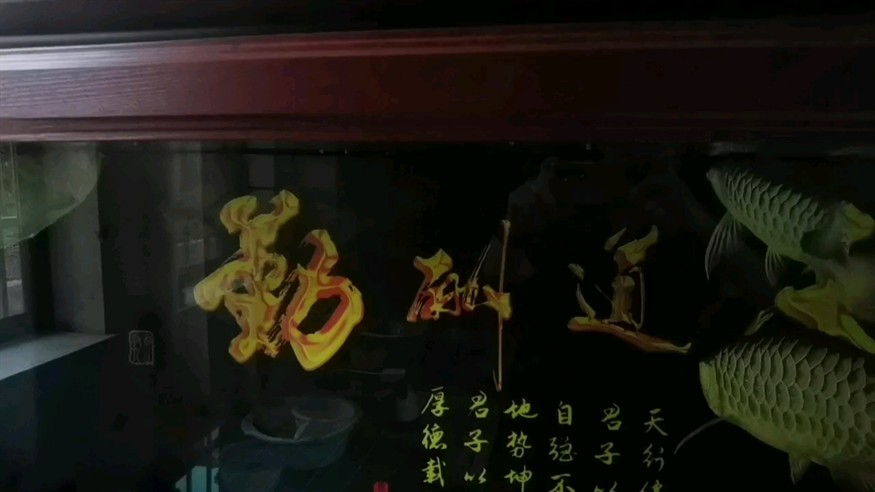 道酬勤
天行健
君子以
自强不
地势坤
君子以
厚德载